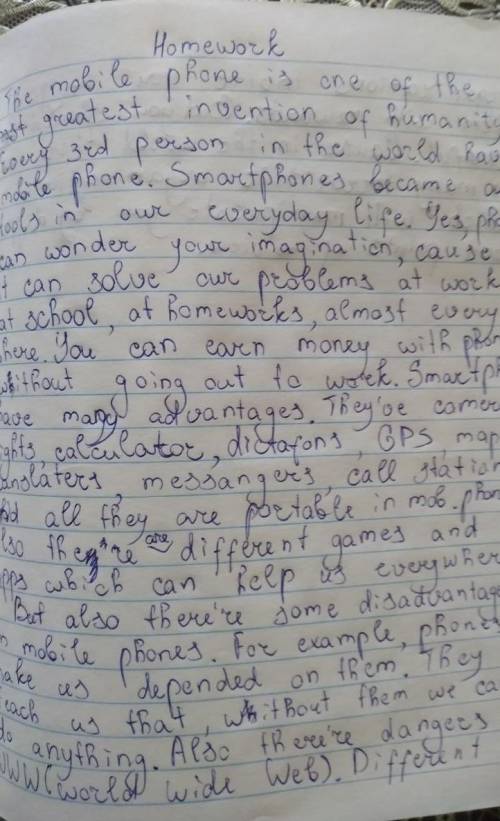 Homework
The mobile phone is one of the
est greatest invention of humanity
Every 3rd person in the world has
mobile phone. Smartphones became a
tools in our everyday life. Yes, pho
can wonder your imagination, cause
t can solve our problems at work
at school, at homeworks, almost every
here. You can earn money with phon
without going out to work. Smartph
ave many advantages. They've camer
ights, calculator, dictafons, GPS, map
anslaters, messangers, call station
nd all they are portable in mob. phon
lso there're are different games and
apps which can help us everywher
But also there're some disadvantage
n mobile phones. For example, phones
make us depended on them. They
teach us that, whithout them we ca
do anything. Also there're dangers
WWW(world wide Web). Different